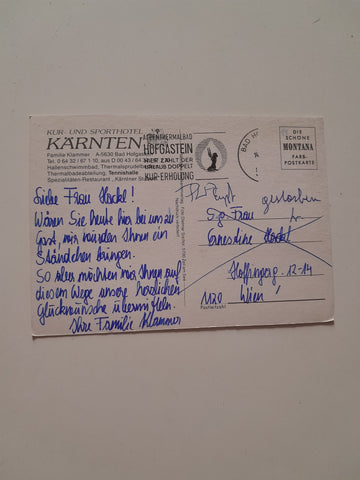 KUR- UND SPORTHOTEL
KÄRNTEN
Familie Klammer · A-5630 Bad Hofgastein
Tel. 0 64 32 / 67 1 10, aus D 00 43 / 64 32
Hallenschwimmbad, Thermalsprudelbad
Thermalbadeabteilung, Tennishalle
Spezialitäten-Restaurant „Kärntner Stub'n"
ALPENTHERMALBAD
HOFGASTEIN
HIER ZÄHLT DER
URLAUB DOPPELT
KUR-ERHOLUNG
BAD H
DIE
SCHÖNE
MONTANA
FARB-
POSTKARTE
Liebe Frau Hackl!
Wären Sie heute hier bei uns zu
Gast, wir würden Ihnen ein
Ständchen bringen.
So aber möchten wir Ihnen auf
diesem Wege unsere herzlichen
Glückwünsche übermitteln.
Ihre Familie Klammer
gestorben
Sg. Frau
Ernestine Hackl
Hoffingerg. 12-14
1120 Wien
Postleitzahl